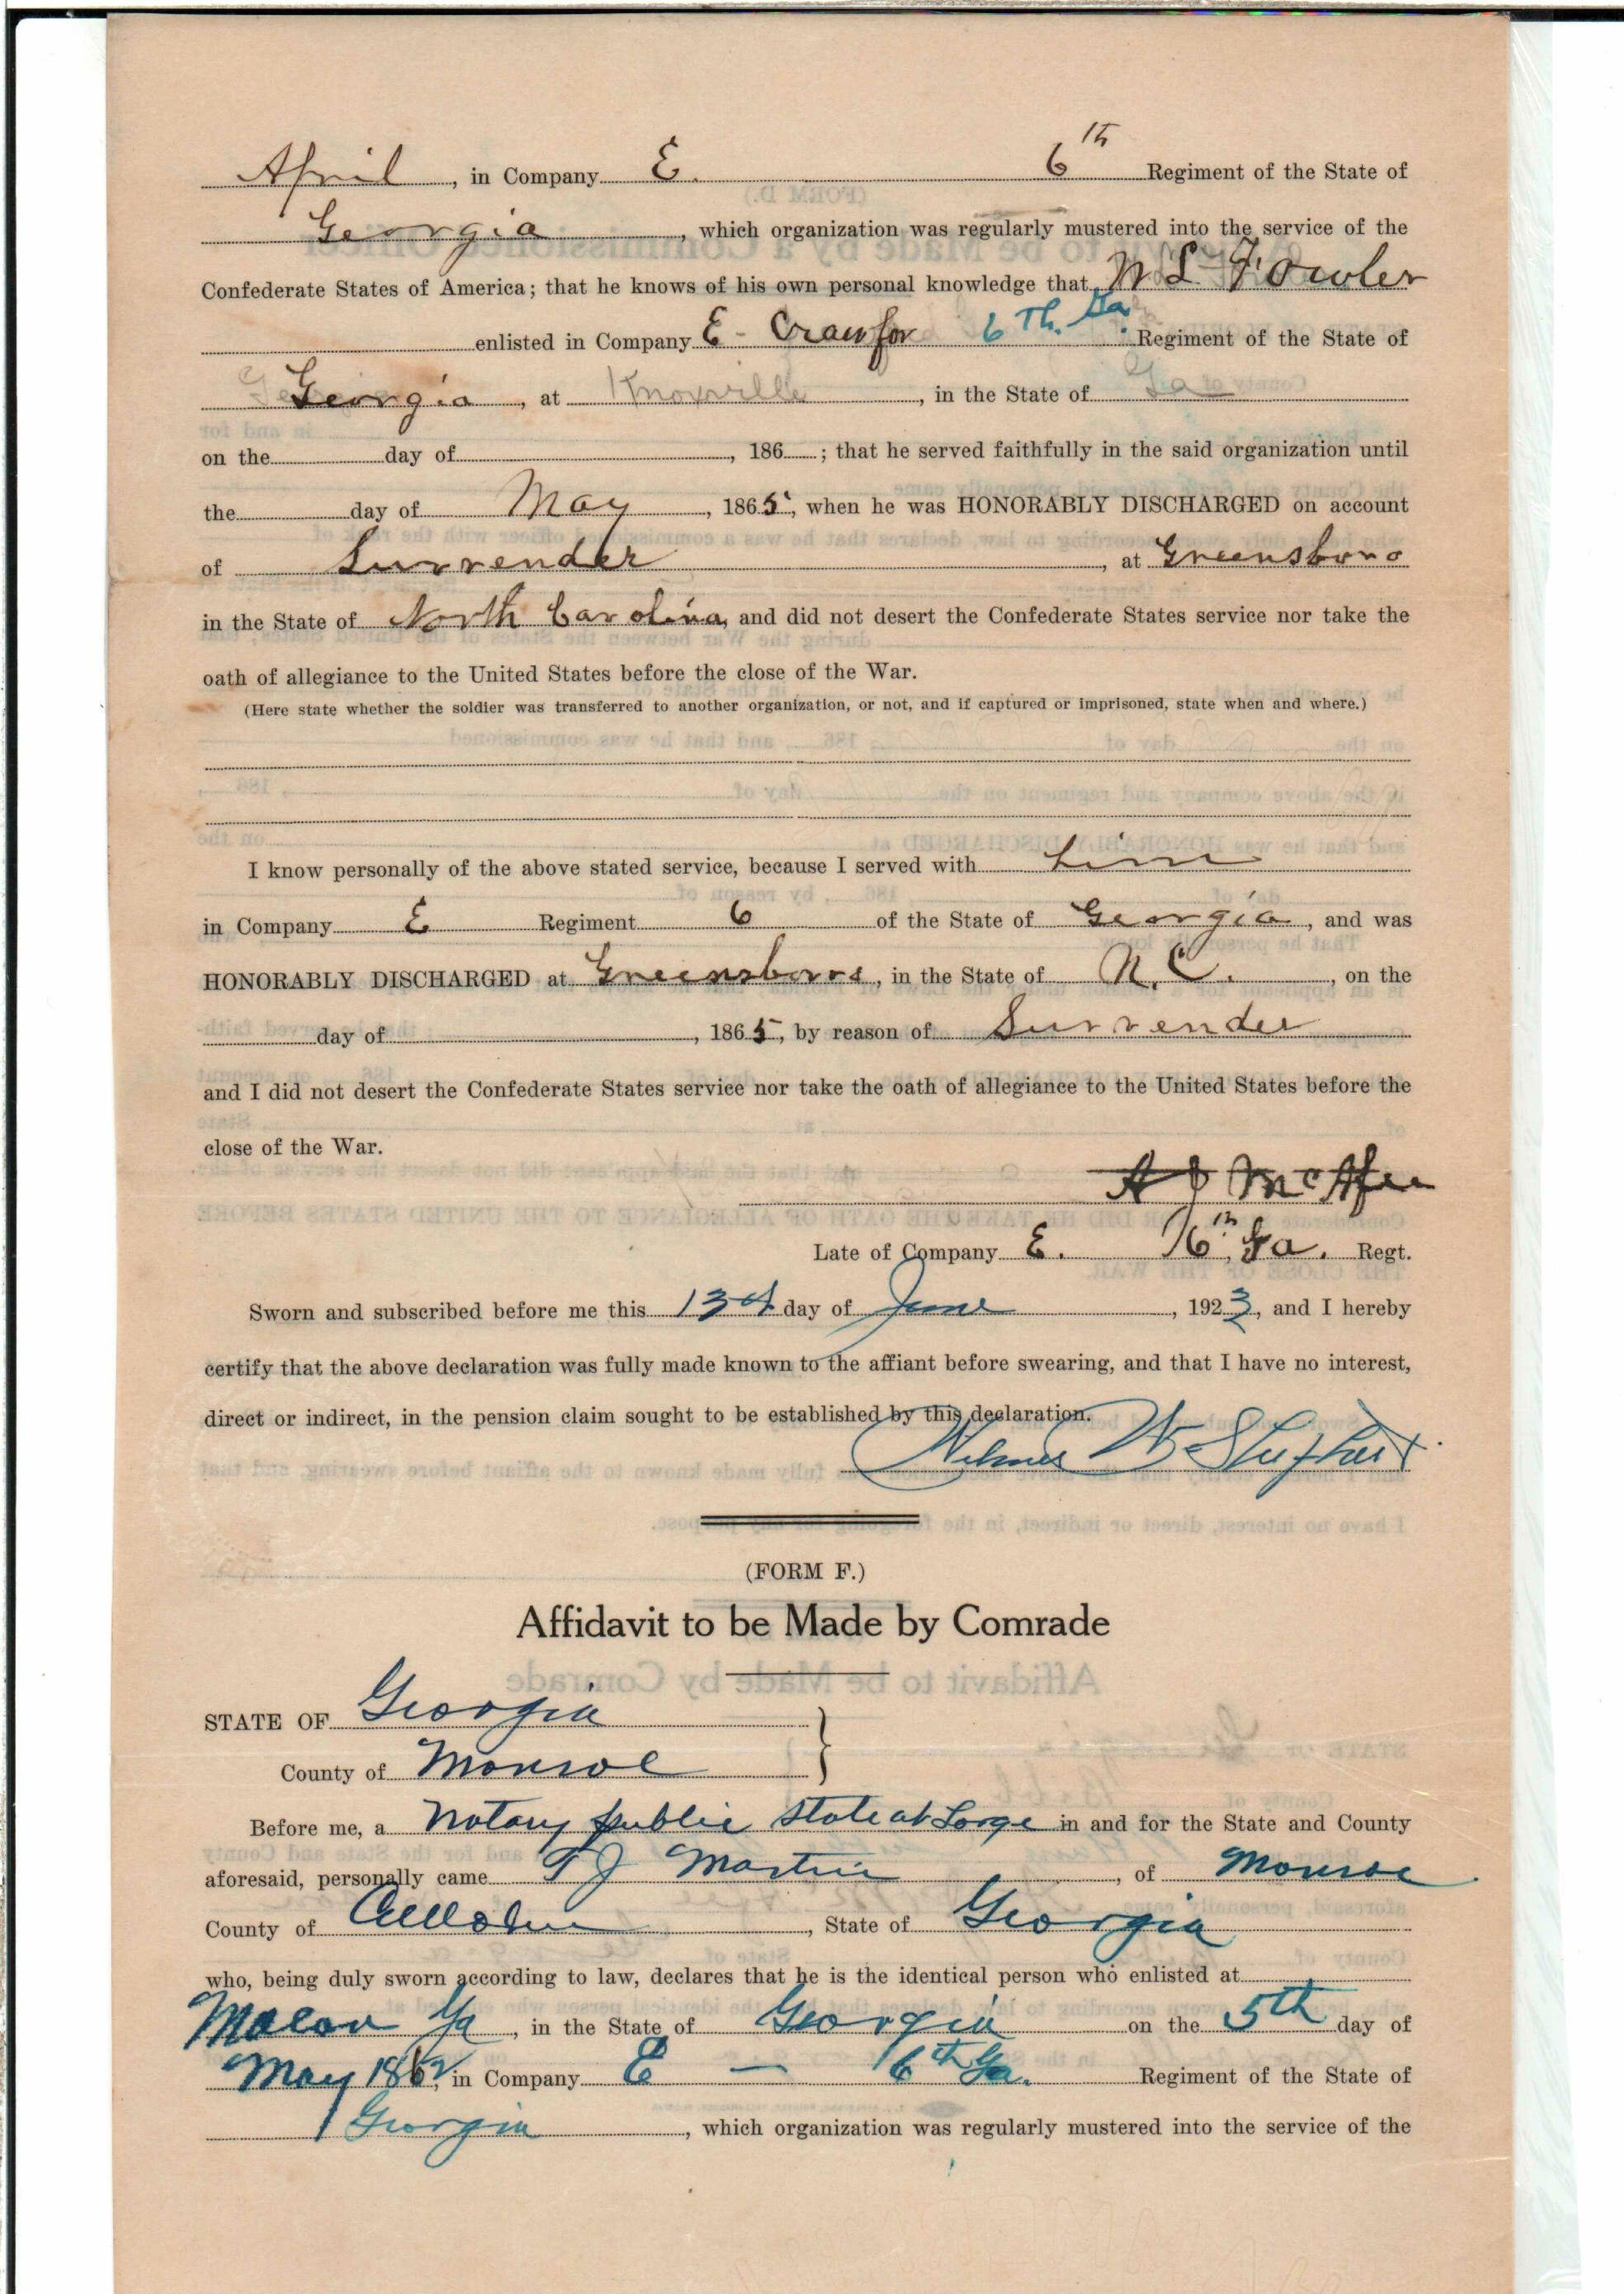 April, in Company E. 6th Regiment of the State of
Georgia, which organization was regularly mustered into the service of the
Confederate States of America; that he knows of his own personal knowledge that W L Fowler
enlisted in Company E - Crawfor 6th. Ga. Regiment of the State of
Georgia, at Knoxville, in the State of Ga
on the day of , 186 ; that he served faithfully in the said organization until
the day of May, 1865, when he was HONORABLY DISCHARGED on account
of Surrender, at Greensboro
in the State of North Carolina, and did not desert the Confederate States service nor take the
oath of allegiance to the United States before the close of the War.
(Here state whether the soldier was transferred to another organization, or not, and if captured or imprisoned, state when and where.)
I know personally of the above stated service, because I served with him
in Company E Regiment 6 of the State of Georgia, and was
HONORABLY DISCHARGED at Greensboro, in the State of N. C., on the
day of , 1865, by reason of Surrender
and I did not desert the Confederate States service nor take the oath of allegiance to the United States before the
close of the War.
A J McAfee
Late of Company E. 6th, Ga. Regt.
Sworn and subscribed before me this 13th day of June, 1923, and I hereby
certify that the above declaration was fully made known to the affiant before swearing, and that I have no interest,
direct or indirect, in the pension claim sought to be established by this declaration.
(FORM F.)
Affidavit to be Made by Comrade
STATE OF Georgia
County of Monroe
Before me, a Notary public State at Large in and for the State and County
aforesaid, personally came T J Martin, of Monroe
County of , State of Georgia
who, being duly sworn according to law, declares that he is the identical person who enlisted at
Macon Ga, in the State of Georgia on the 5th day of
May 1862, in Company E — 6th Ga. Regiment of the State of
Georgia, which organization was regularly mustered into the service of the